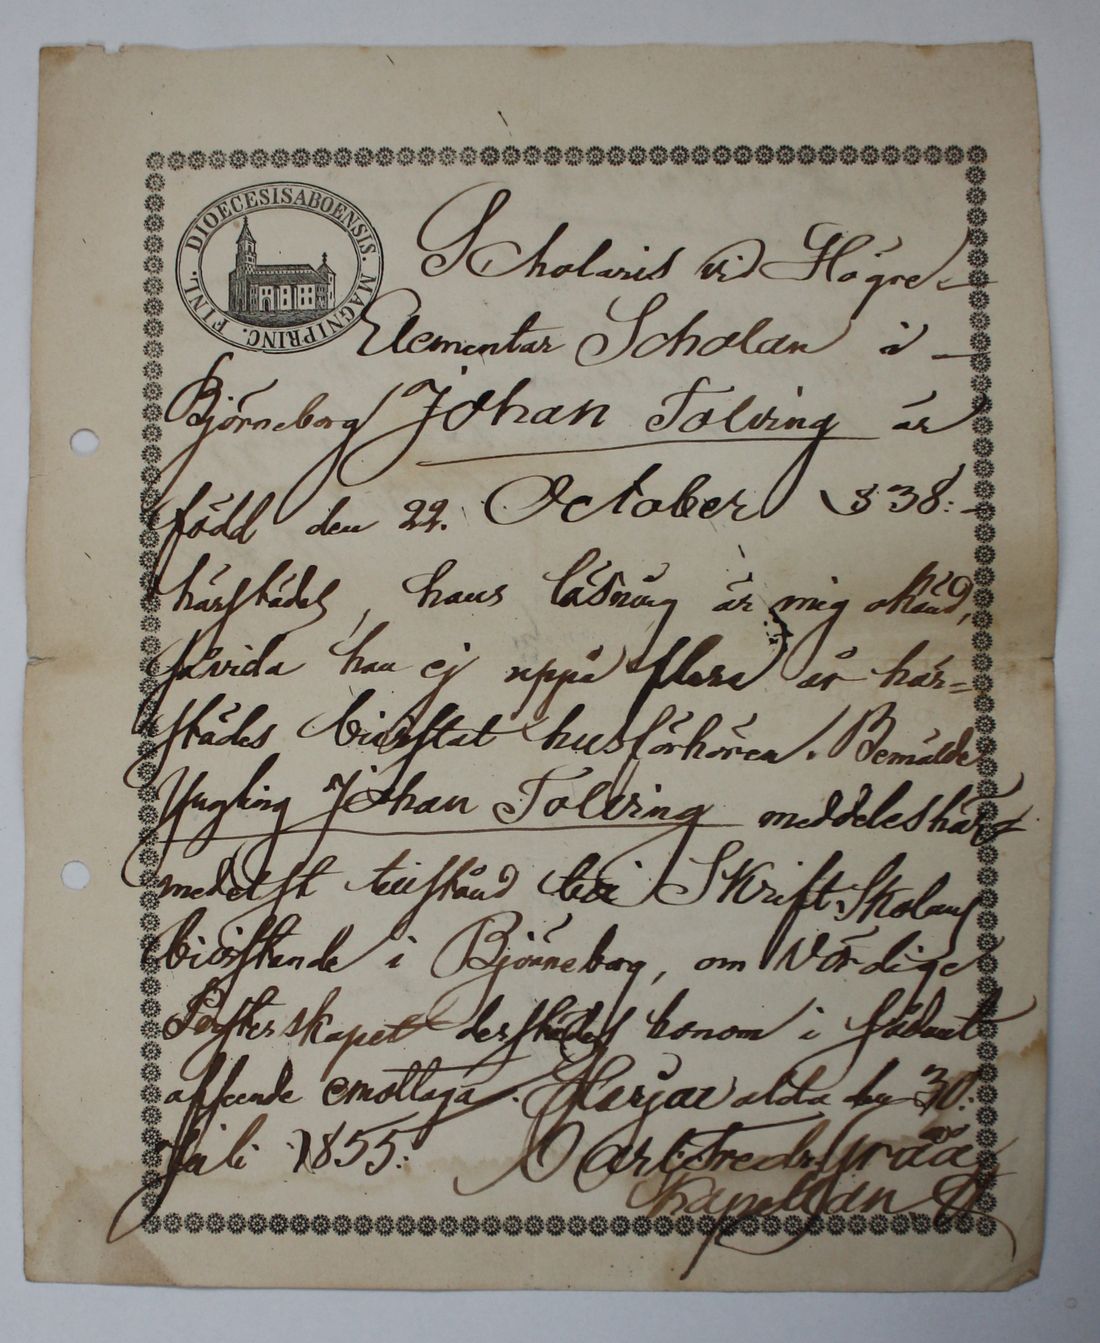 DIOECESIS ABOENSIS. MAGNI PRINC. FINL.
Scholaris vid Högre
Elementar Scholan i
Björneborg Johan Tolving är
född den 22. October 838:
härstädes, hans läsning är mig okänd,
såvida han ej uppå flera år här=
städes bivistat husförhören. Bemälde
Yngling Johan Tolving meddelas här
medelst tillstånd till Skrift Skolans
bivistande i Björneborg, om Vördige
Presterskapet derstädes honom i sådant
afseende emottaga. den 30:
Juli 1855: Carl Fredr. Gråå
Kapellan